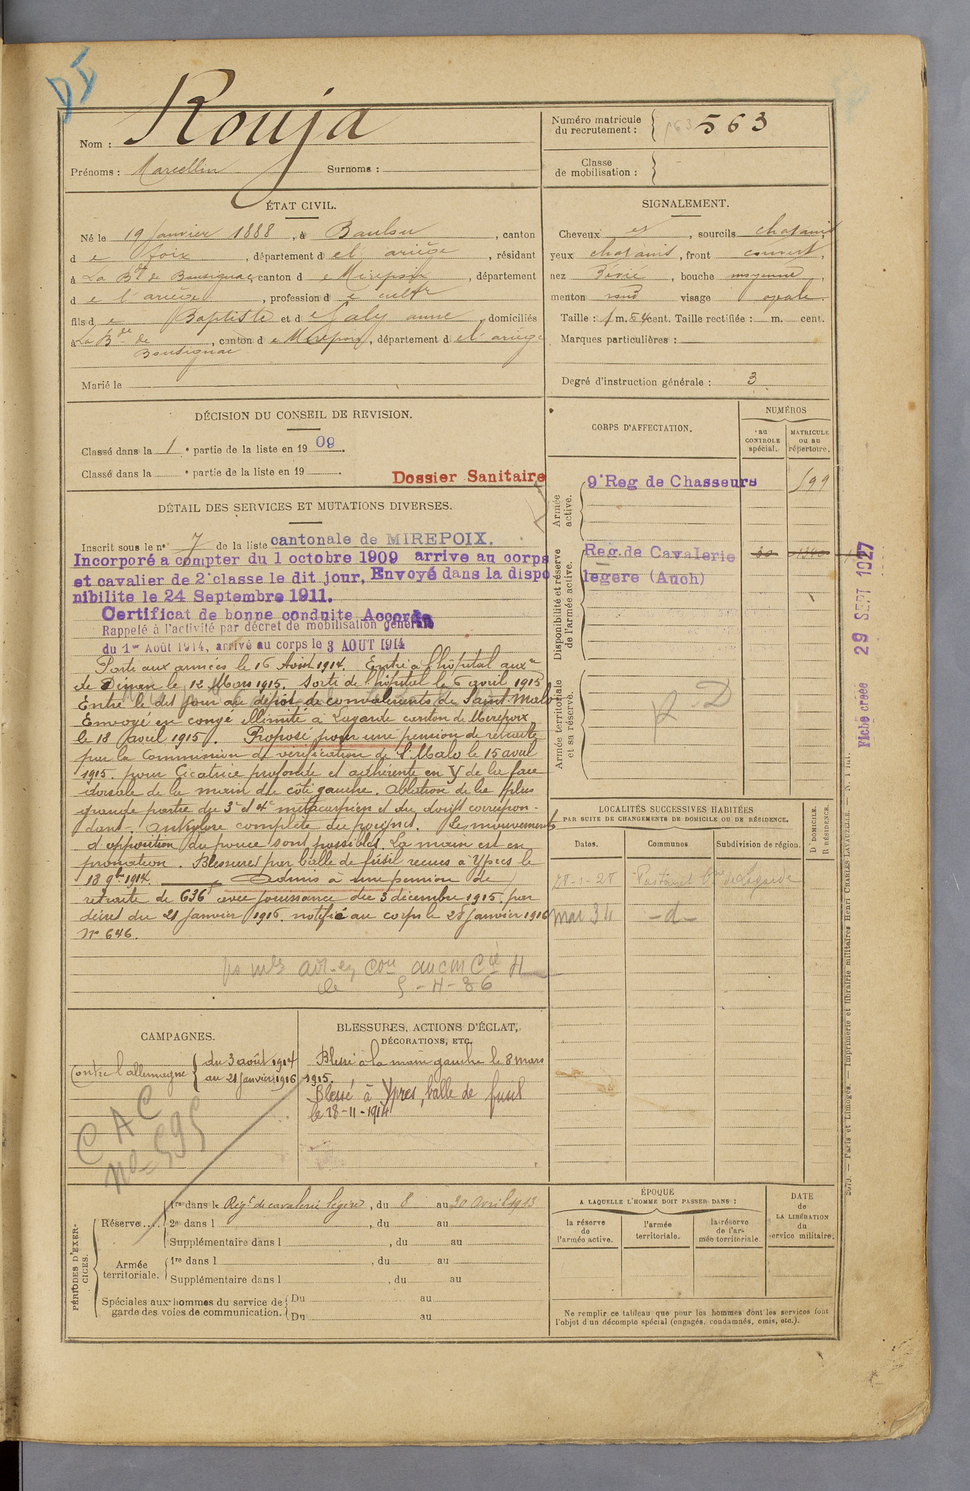 DI
Nom : Rouja
Prénoms : Marcellin Surnoms :
Numéro matricule du recrutement : 563
Classe de mobilisation :
ÉTAT CIVIL.
Né le 19 Janvier 1888, à Baulou, canton
de Foix, département de l'ariège, résidant
à La Bde de Bousignac, canton de Mirepoix, département
de l'ariège, profession de cultr
fils de Baptiste et de Galy anne, domiciliés
à La Bde de Bousignac, canton de Mirepoix, département de l'ariège
Marié le
SIGNALEMENT.
Cheveux et, sourcils chatains
yeux chatains, front couvert,
nez , bouche moyenne,
menton rond visage ovale
Taille : 1 m. 54 cent. Taille rectifiée : m. cent.
Marques particulières :
Degré d'instruction générale : 3
DÉCISION DU CONSEIL DE REVISION.
Classé dans la 1e partie de la liste en 1909.
Classé dans la e partie de la liste en 19 .
Dossier Sanitaire
DÉTAIL DES SERVICES ET MUTATIONS DIVERSES.
Inscrit sous le n° 7 de la liste cantonale de MIREPOIX.
Incorporé a compter du 1 octobre 1909 arrive au corps
et cavalier de 2e classe le dit jour, Envoyé dans la dispo
nibilite le 24 Septembre 1911.
Certificat de bonne conduite Accordé
Rappelé à l'activité par décret de mobilisation générale
du 1er Août 1914, arrivé au corps le 3 AOUT 1914
Parti aux armées le 16 Août 1914. Entré à l'hôpital auxre
de Dinan le 12 Mars 1915. Sorti de l'hôpital le 6 avril 1915
Entré le dit jour au dépôt de convalescents de Saint Malo
Envoyé en congé illimité à Lagarde canton de Mirepoix
le 18 avril 1915. Proposé pour une pension de retraite
par la Commission de vérification de St Malo le 15 avril
1915. pour Cicatrice profonde et adhérente en Y de la face
dorsale de la main du côté gauche. ablation de la plus
grande partie du 3e et 4e métacarpien et du doigt correspon-
dant. ankylose complète du poignet. Les mouvements
d'opposition du pouce sont possibles. La main est en
pronation. Blessures par balle de fusil recues à Ypres le
18 9bre 1914. Admis à une pension de
retraite de 636f avec jouissance du 3 décembre 1915. par
décret du 21 Janvier 1916. notifié au corps le 28 Janvier 1916
N° 646.
CORPS D'AFFECTATION.
NUMÉROS
au CONTROLE spécial.
MATRICULE ou au répertoire.
Armée active.
9e Reg de Chasseurs 599
Disponibilité et réserve de l'armée active.
Reg. de Cavalerie
légere (Auch)
Armée territoriale et sa réserve.
R D
Fiche créée 29 SEPT 1927
LOCALITÉS SUCCESSIVES HABITÉES
PAR SUITE DE CHANGEMENTS DE DOMICILE OU DE RÉSIDENCE.
Dates. Communes Subdivision de région. D. DOMICILE. R. RÉSIDENCE.
Mai 34 -d-
CAMPAGNES.
Contre l'allemagne du 3 août 1914
au 21 Janvier 1916
CAC
no 595
BLESSURES, ACTIONS D'ÉCLAT,
DÉCORATIONS, ETC.
Blessé à la main gauche le 8 mars
1915.
Blessé à Ypres, balle de fusil
le 18-11-1914
PÉRIODES D'EXERCICES.
Réserve....
1re dans le Régt de cavalerie légère, du 8 au 20 Avril 1913
2e dans l , du au
Supplémentaire dans l , du au
Armée territoriale.
1re dans l , du au
Supplémentaire dans l , du au
Spéciales aux hommes du service de garde des voies de communication.
Du au
Du au
ÉPOQUE
A LAQUELLE L'HOMME DOIT PASSER DANS :
la réserve de l'armée active.
l'armée territoriale.
la réserve de l'armée territoriale.
DATE DE LA LIBÉRATION du service militaire.
Ne remplir ce tableau que pour les hommes dont les services font
l'objet d'un décompte spécial (engagés, condamnés, omis, etc.).
Paris et Limoges. — Imprimerie et librairie militaires Henri CHARLES-LAVAUZELLE.